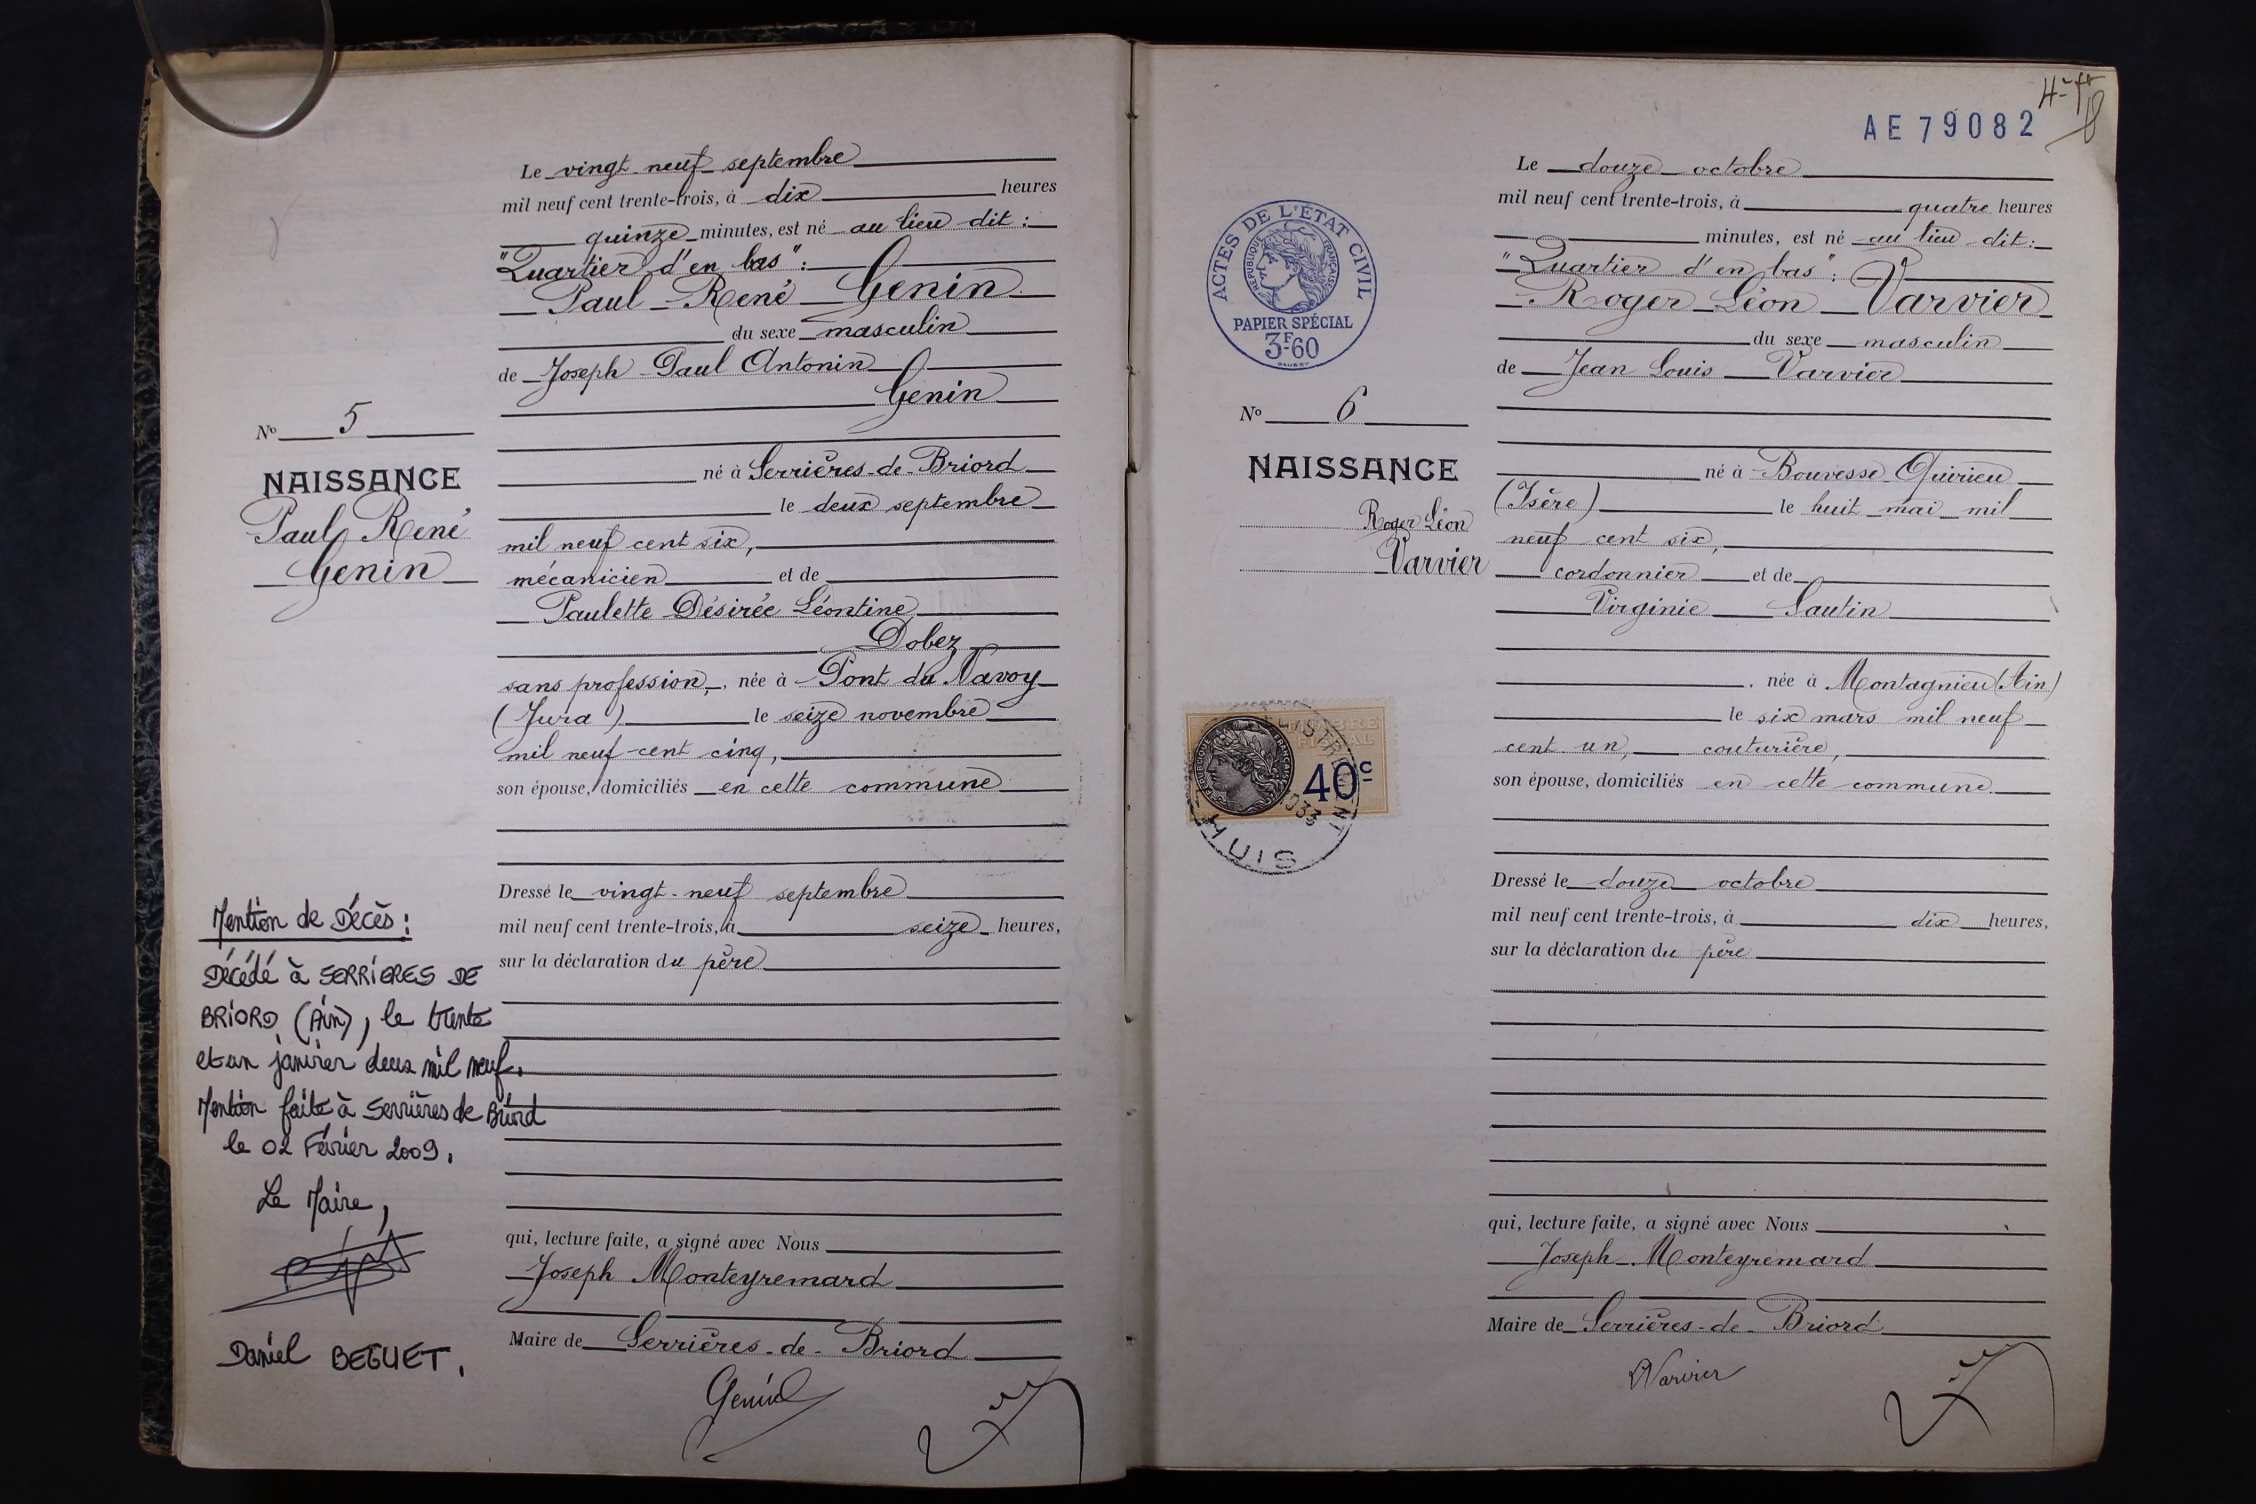 Le vingt-neuf septembre
mil neuf cent trente-trois, à dix heures
quinze minutes, est né au lieu dit :
"Quartier d'en bas" :
Paul - René Genin
du sexe masculin
de Joseph Paul Antonin
Genin
né à Serrières-de-Briord
le deux septembre
mil neuf cent six,
mécanicien et de
Paulette Désirée Léontine
Dobez
sans profession, née à Pont du Navoy
(Jura) le seize novembre
mil neuf cent cinq,
son épouse, domiciliés en cette commune
Dressé le vingt-neuf septembre
mil neuf cent trente-trois, à seize heures,
sur la déclaration du père
qui, lecture faite, a signé avec Nous
Joseph Monteyremard
Maire de Serrières-de-Briord
Genin
No 5
NAISSANCE
Paul René
Genin
Mention de Décès :
Décédé à SERRIERES DE
BRIORD (Ain), le trente
et un janvier deux mil neuf.
Mention faite à Serrières de Briord
le 02 Février 2009.
Le Maire,
Daniel BEGUET.
AE 79082
Le douze octobre
mil neuf cent trente-trois, à quatre heures
minutes, est né au lieu dit :
"Quartier d'en bas" :
Roger Léon Varvier
du sexe masculin
de Jean Louis Varvier
né à Bouvesse Quirieu
(Isère) le huit mai mil
neuf cent six,
cordonnier et de
Virginie Sautin
née à Montagnieu (Ain)
le six mars mil neuf
cent un, couturière,
son épouse, domiciliés en cette commune.
Dressé le douze octobre
mil neuf cent trente-trois, à dix heures,
sur la déclaration du père
qui, lecture faite, a signé avec Nous
Joseph Monteyremard
Maire de Serrières-de-Briord
Varvier
ACTES DE L'ÉTAT CIVIL
REPUBLIQUE FRANÇAISE
PAPIER SPÉCIAL
3F60
No 6
NAISSANCE
Roger Léon
Varvier
TIMBRE
FISCAL
REPUBLIQUE FRANÇAISE
40c
HUIS